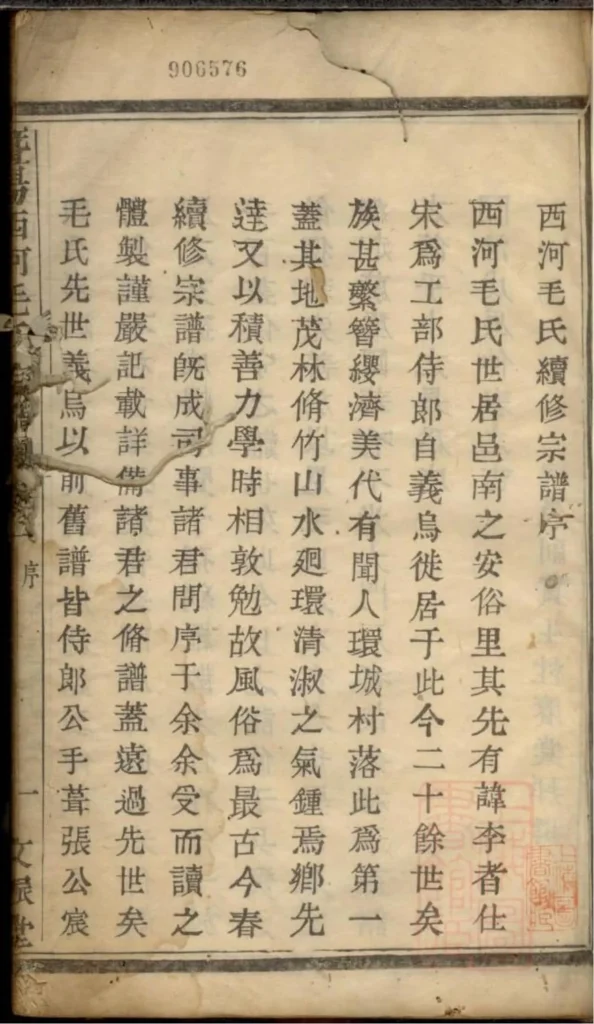 906576
西河毛氏續修宗譜序
西河毛氏世居邑南之安俗里其先有諱李者仕
宋爲工部侍郎自義烏徙居于此今二十餘世矣
族甚繫簪纓濟美代有聞人環城村落此爲第一
蓋其地茂林脩竹山水廻環清淑之氣鍾焉鄉先
達又以積善力學時相敦勉故風俗爲最古今春
續修宗譜旣成司事諸君問序于余余受而讀之
體製謹嚴記載詳備諸君之脩譜蓋遠過先世矣
毛氏先世義烏以前舊譜皆侍郎公手葺張公宸
西河毛氏
序
一